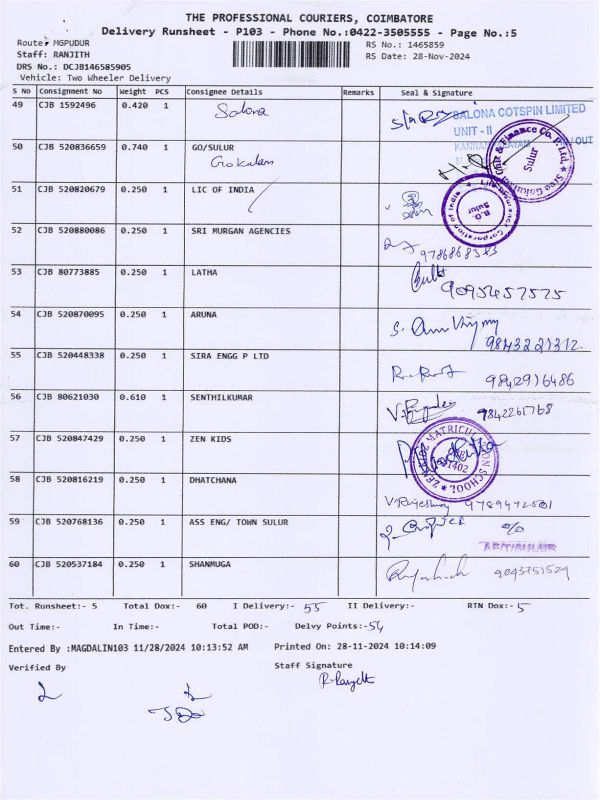 THE PROFESSIONAL COURIERS, COIMBATORE
Delivery Runsheet - P103 - Phone No.:0422-3505555 - Page No.:5
Route: MGPUDUR RS No.: 1465859
Staff: RANJITH RS Date: 28-Nov-2024
DRS No.: DCJB146585905
Vehicle: Two Wheeler Delivery
S No Consignment No Weight PCS Consignee Details Remarks Seal & Signature
49 CJB 1592496 0.420 1 Salona SALONA COTSPIN LIMITED
UNIT - II
50 CJB 520836659 0.740 1 GO/SULUR
Gokulam
Sulur
51 CJB 520820679 0.250 1 LIC OF INDIA
Life Insurance Corporation of India
B.O.
Sulur
52 CJB 520880086 0.250 1 SRI MURGAN AGENCIES
53 CJB 80773885 0.250 1 LATHA 9095457575
54 CJB 520870095 0.250 1 ARUNA
9843221312
55 CJB 520448338 0.250 1 SIRA ENGG P LTD 9842916486
56 CJB 80621030 0.610 1 SENTHILKUMAR 9842261768
57 CJB 520847429 0.250 1 ZEN KIDS
MATRICULATION SCHOOL
58 CJB 520816219 0.250 1 DHATCHANA
59 CJB 520768136 0.250 1 ASS ENG/ TOWN SULUR
60 CJB 520537184 0.250 1 SHANMUGA 9043751529
Tot. Runsheet:- 5 Total Dox:- 60 I Delivery:- 55 II Delivery:- RTN Dox:- 5
Out Time:- In Time:- Total POD:- Delvy Points:- 54
Entered By :MAGDALIN103 11/28/2024 10:13:52 AM Printed On: 28-11-2024 10:14:09
Verified By Staff Signature